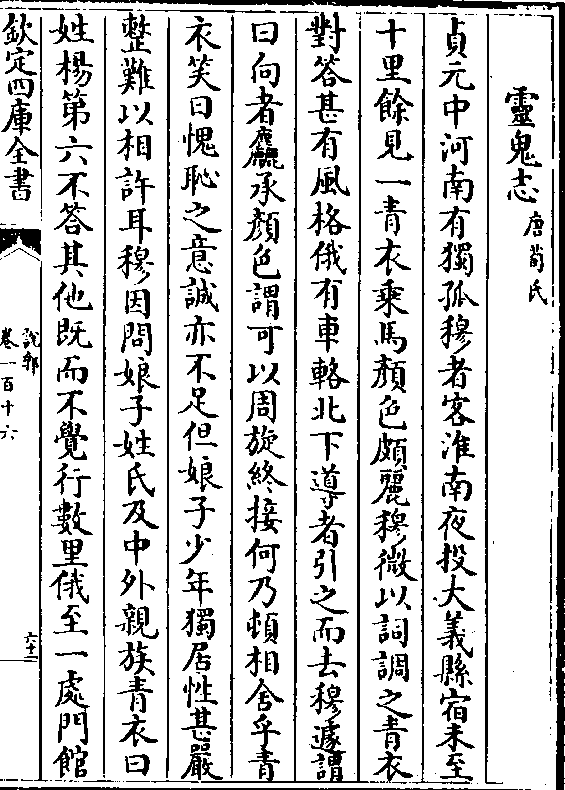 靈鬼志 唐荀氏
貞元中河南有獨孤穆者客淮南夜投大義縣宿未至
十里餘見一青衣乘馬顏色頗麗穆微以詞調之青衣
對答甚有風格俄有車輅北下導者引之而去穆遽謂
曰向者麤承顏色謂可以周旋終接何乃頓相舍乎青
衣笑曰愧恥之意誠亦不足但娘子少年獨居性甚嚴
整難以相許耳穆因問娘子姓氏及中外親族青衣曰
姓楊第六不答其他既而不覺行數里俄至一處門館
欽定四庫全書
說郛
卷一百十六
六十二